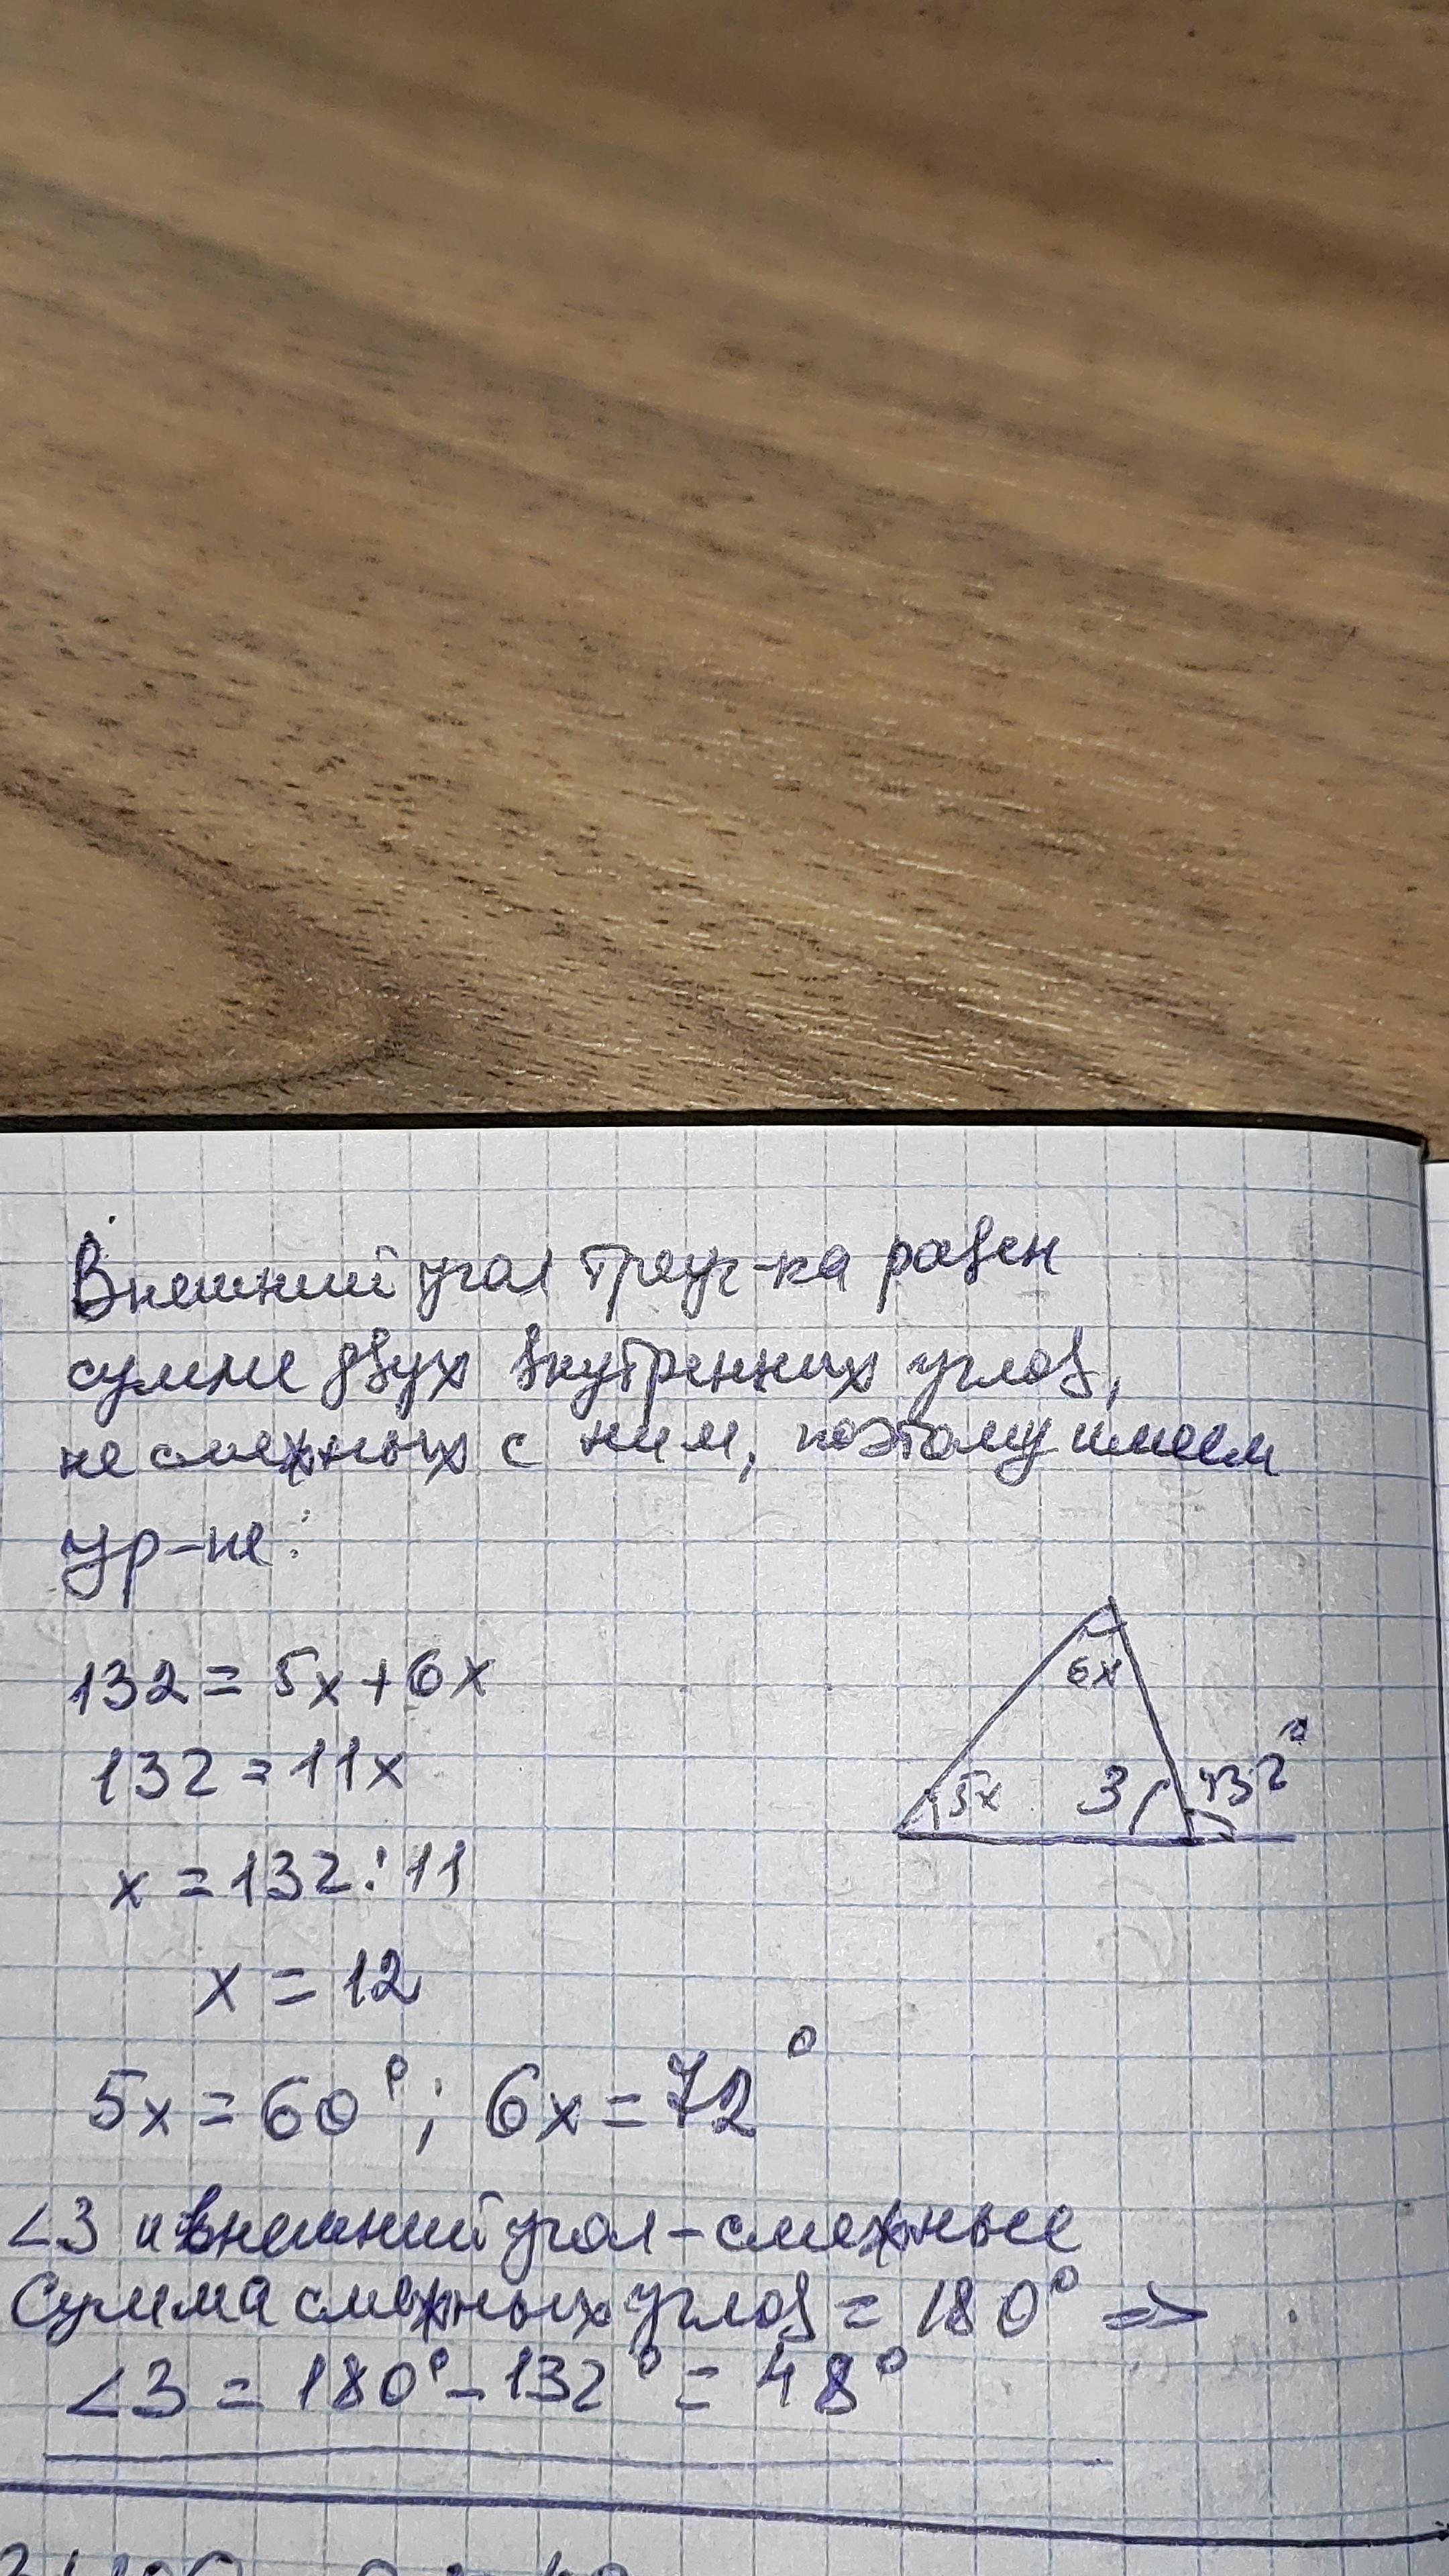 Внешний угол треуг-ка равен
сумме двух внутренних углов,
не смежных с ним, поэтому имеем
ур-не:
132 = 5x + 6x
132 = 11x
x = 132 : 11
x = 12
5x = 60°; 6x = 72°
6x
5x 3 132°
∠3 и внешний угол - смежные
Сумма смежных углов = 180° =>
∠3 = 180° - 132° = 48°